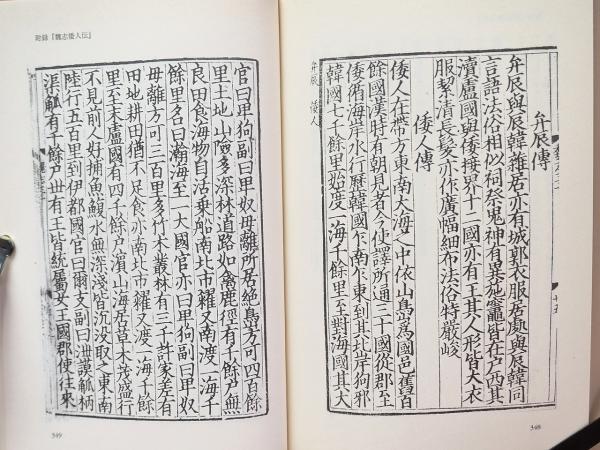 弁辰傳
弁辰與辰韓雜居亦有城郭衣服居處與辰韓同
言語法俗相似祠祭鬼神有異施竈皆在戶西其
瀆盧國與倭接界十二國亦有王其人形皆大衣
服絜清長髮亦作廣幅細布法俗特嚴峻
倭人傳
倭人在帶方東南大海之中依山㠀為國邑舊百
餘國漢時有朝見者今使譯所通三十國從郡至
倭循海岸水行歷韓國乍南乍東到其北岸狗邪
韓國七千餘里始度一海千餘里至對海國其大
弁辰 倭人
348
附録『魏志倭人伝』
官曰卑狗副曰卑奴母離所居絶㠀方可四百餘
里土地山險多深林道路如禽鹿徑有千餘戶無
良田食海物自活乗船南北市糴又南渡一海千
餘里名曰瀚海至一大國官亦曰卑狗副曰卑奴
母離方可三百里多竹木叢林有三千許家差有
田地耕田猶不足食亦南北市糴又渡一海千餘
里至末盧國有四千餘戶濱山海居草木茂盛行
不見前人好捕魚鰒水無深淺皆沈没取之東南
陸行五百里到伊都國官曰爾支副曰泄謨觚柄
渠觚有千餘戶世有王皆統屬女王國郡使往來
349